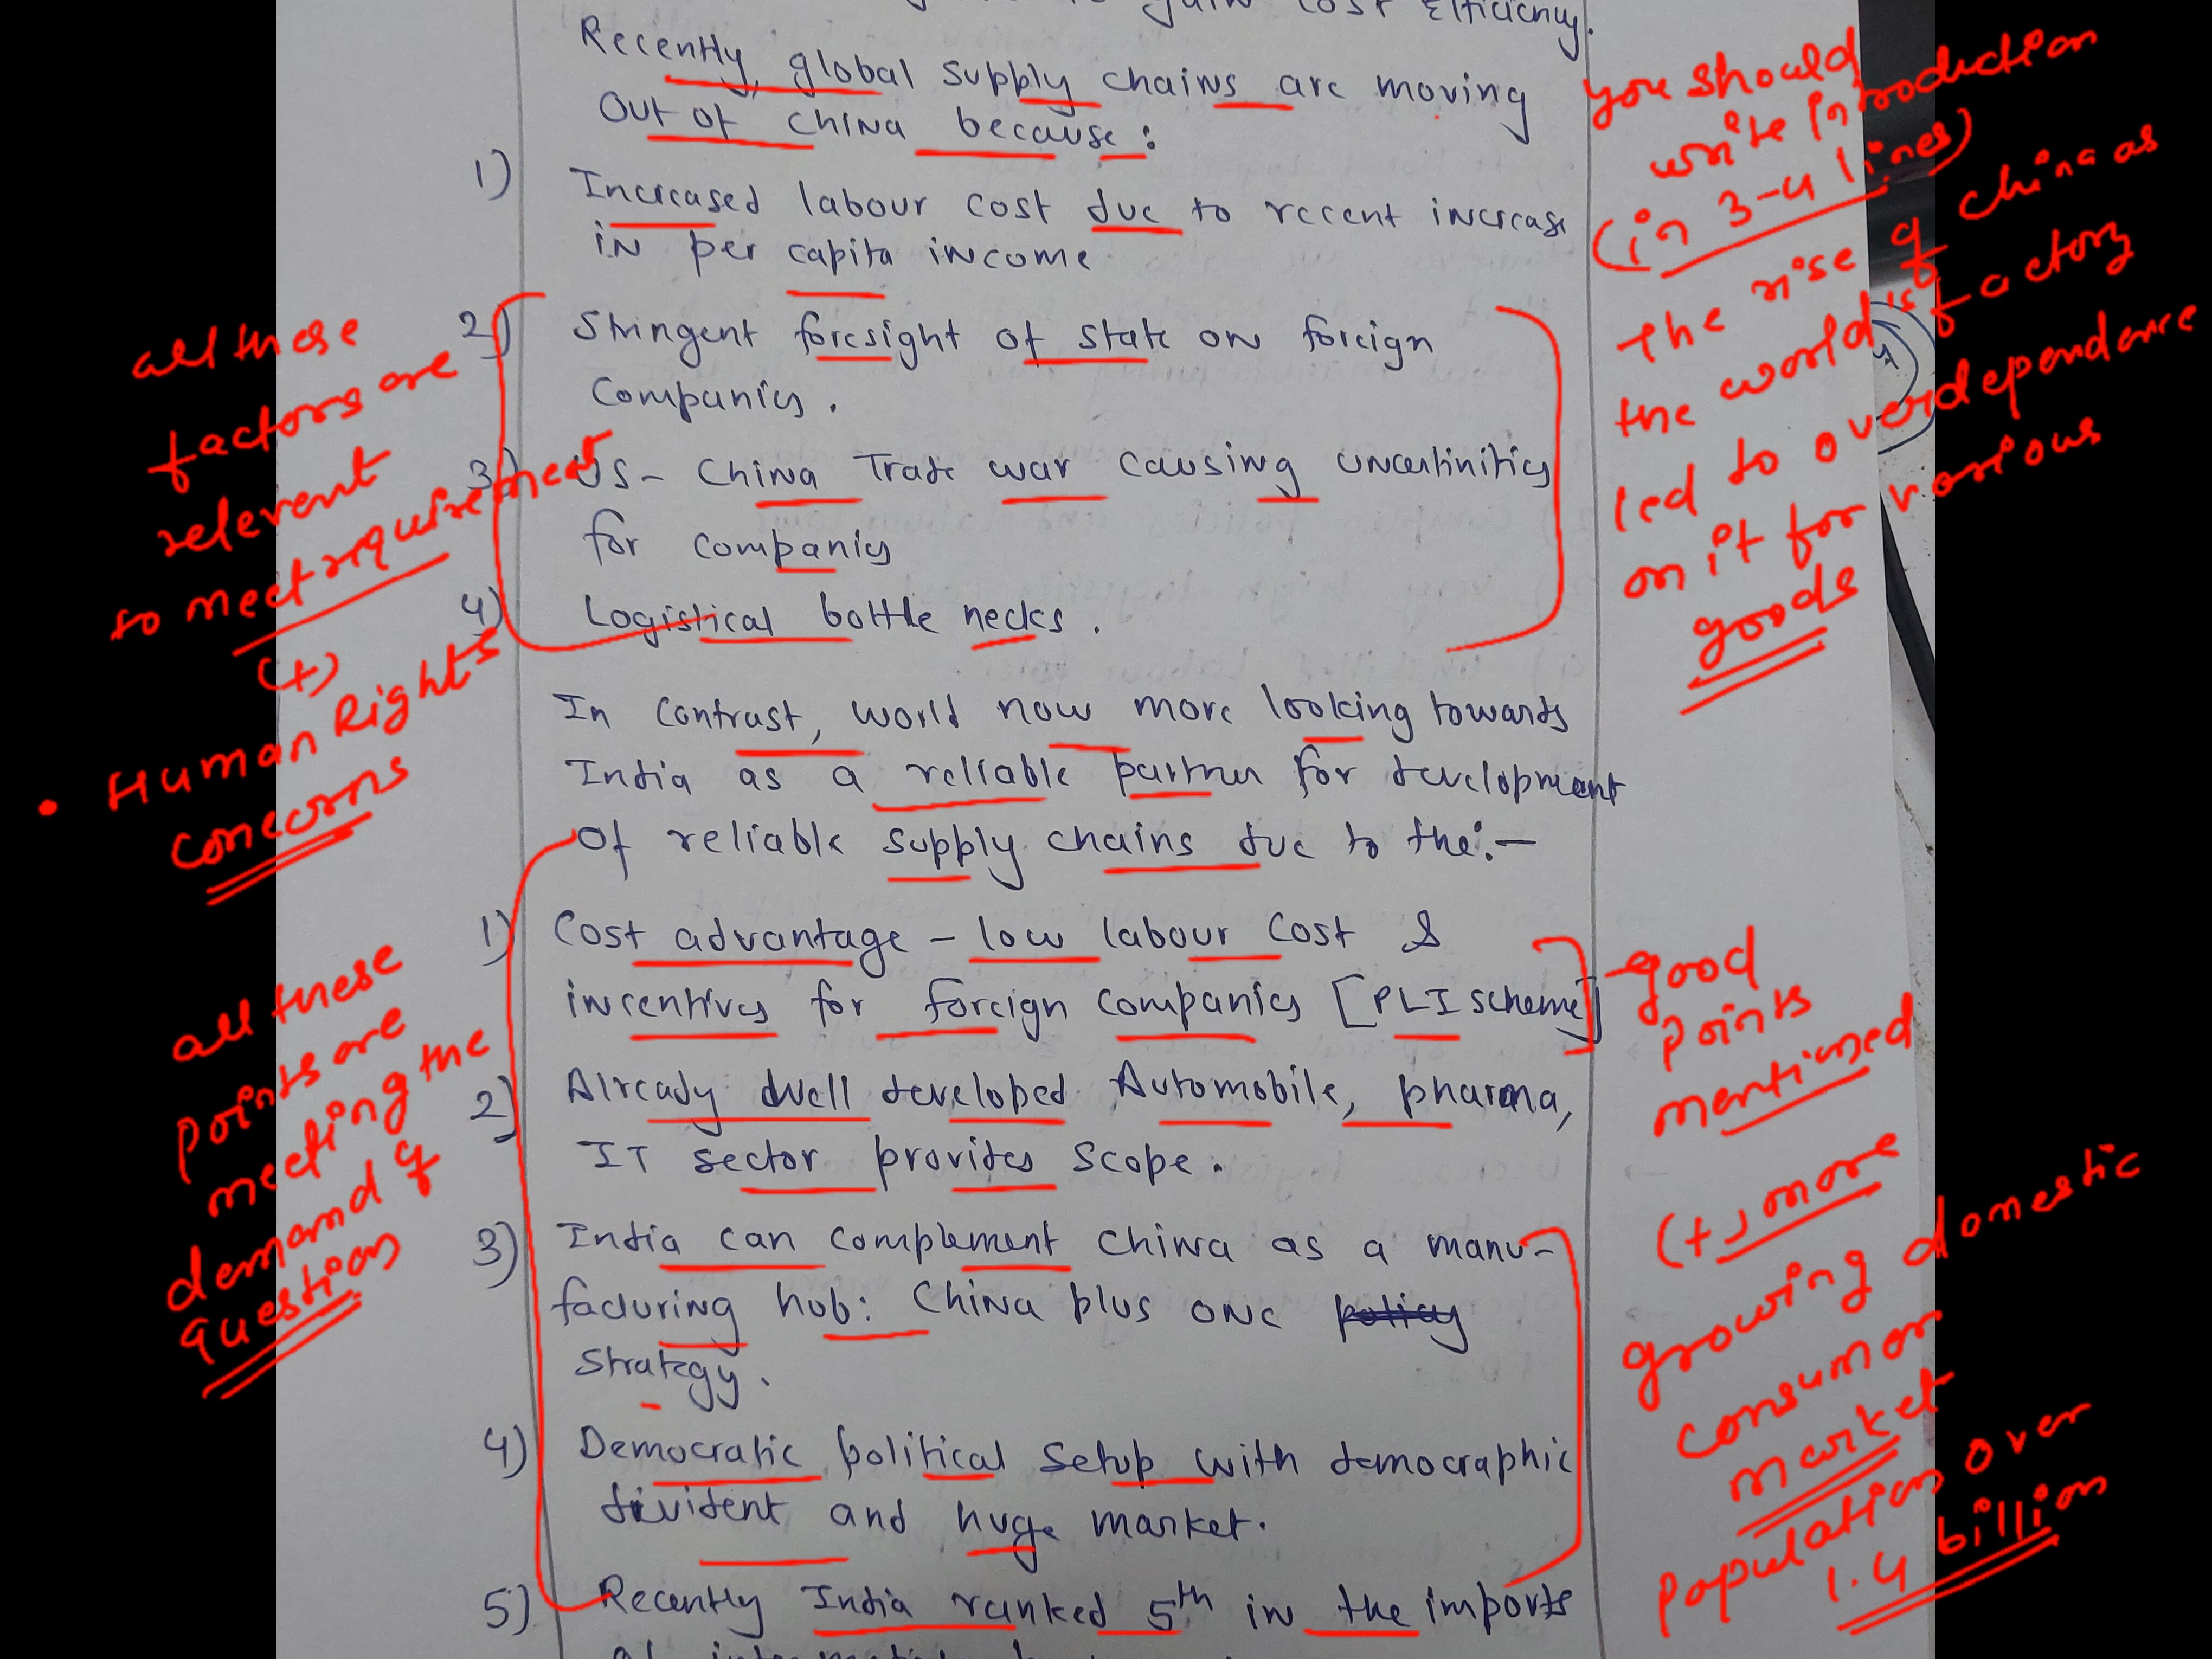 to gain cost Efficiency.
Recently, global supply chains are moving
Out of China because:
1) Increased labour cost due to recent increase
in per capita income
2) Stringent foresight of state on foreign
Companies.
3) US- China Trade war causing uncertinities
for companies
4) Logistical bottle necks.
In contrast, world now more looking towards
India as a reliable partner for development
Of reliable supply chains due to the:-
1) Cost advantage - low labour cost &
incentives for foreign companies [PLI scheme]
2) Already well developed Automobile, pharma,
IT sector provides scope.
3) India can complement China as a manu-
facturing hub: China plus one policy
strategy.
4) Democratic political setup with demographic
divident and huge market.
5) Recently India ranked 5th in the imports
all these
factors are
relevent
to meet requirement
(+)
• Human Rights
concerns
all these
points are
meeting the
demand of
question
you should
write introduction
(in 3-4 lines)
The rise of china as
the world's factory
led to overdependence
on it for various
goods
good
points
mentioned
(+) more
growing domestic
consumor
market
population over
1.4 billion